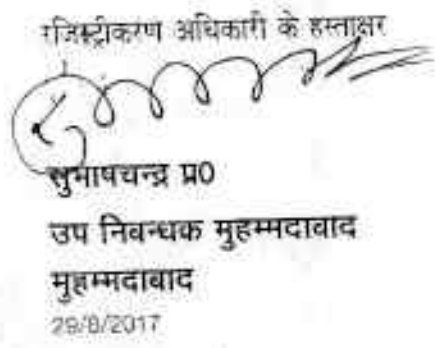 रजिस्ट्रीकरण अधिकारी के हस्ताक्षर
सुभाषचन्द्र प्र0
उप निबन्धक मुहम्मदाबाद
मुहम्मदाबाद
29/8/2017